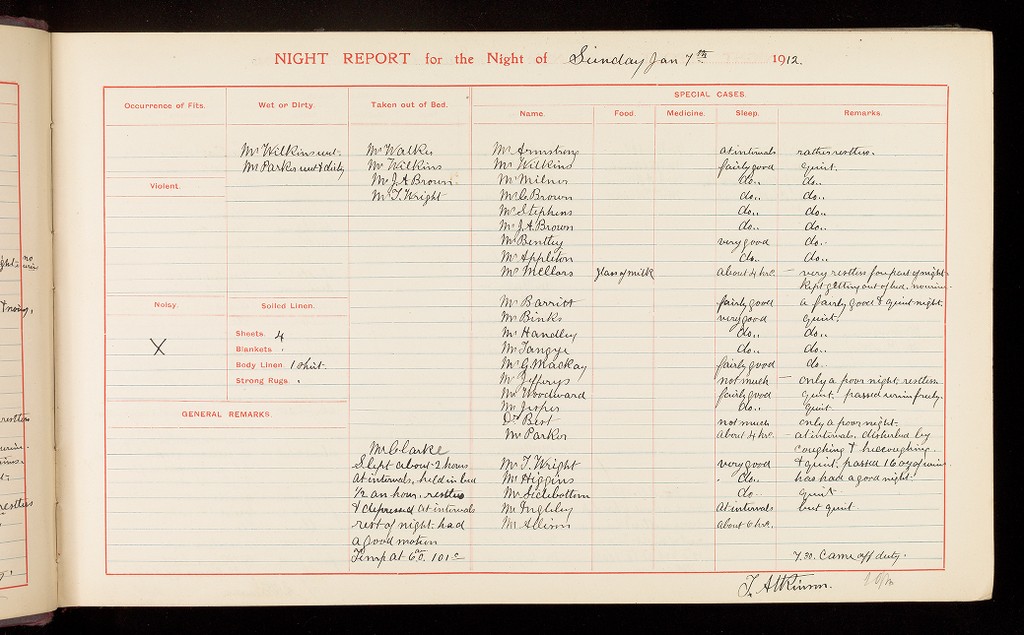 NIGHT REPORT for the Night of Sunday Jan 7th 1912.
Occurrence of Fits.
Wet or Dirty.
Taken out of Bed.
SPECIAL CASES.
Name. Food. Medicine. Sleep. Remarks.
Mr Wilkins wet.
Mr Parker wet & dirty
Mr Walker
Mr Wilkins
Mr J.A. Brown
Mr T. Wright
Violent.
Noisy.
X
Soiled Linen.
Sheets. 4
Blankets "
Body Linen 1 Shirt.
Strong Rugs "
GENERAL REMARKS.
Mr Armstrong at intervals rather restless.
Mr Wilkins fairly good quiet.
Mr Milnes do.. do..
Mr C. Brown do.. do..
Mr Stephens do.. do..
Mr J.A. Brown do.. do..
Mr Bentley very good do..
Mr Appleton do.. do..
Mr Mellors glass of milk about 4 hrs. – very restless for part of night
Kept getting out of bed.
Mr Barritt fairly good a fairly good & quiet night.
Mr Binks very good quiet.
Mr Handley do.. do..
Mr Tangye do.. do..
Mr G. Mackay fairly good do..
Mr Jefferys not much – only a poor night, restless
Mr Woodward fairly good quiet. passed urine freely.
Mr Jesper do.. quiet
Dr Best not much only a poor night.
Mr Parker about 4 hrs. at intervals. disturbed by
coughing & hiccoughing.
Mr T. Wright very good & quiet. passed 16 ozs of urine.
Mr Higgins do.. has had a good night.
Mr Sidebottom do.. quiet
Mr Ingleby at intervals but quiet
Mr Allison about 6 hrs.
Mr Clarke
Slept about 2 hours
at intervals, held in bed
1/2 an hour, restless
& depressed at intervals
rest of night. had
a good motion
Temp at 6 a.m. 101°
7.30. Came off duty.
T. Atkinson.